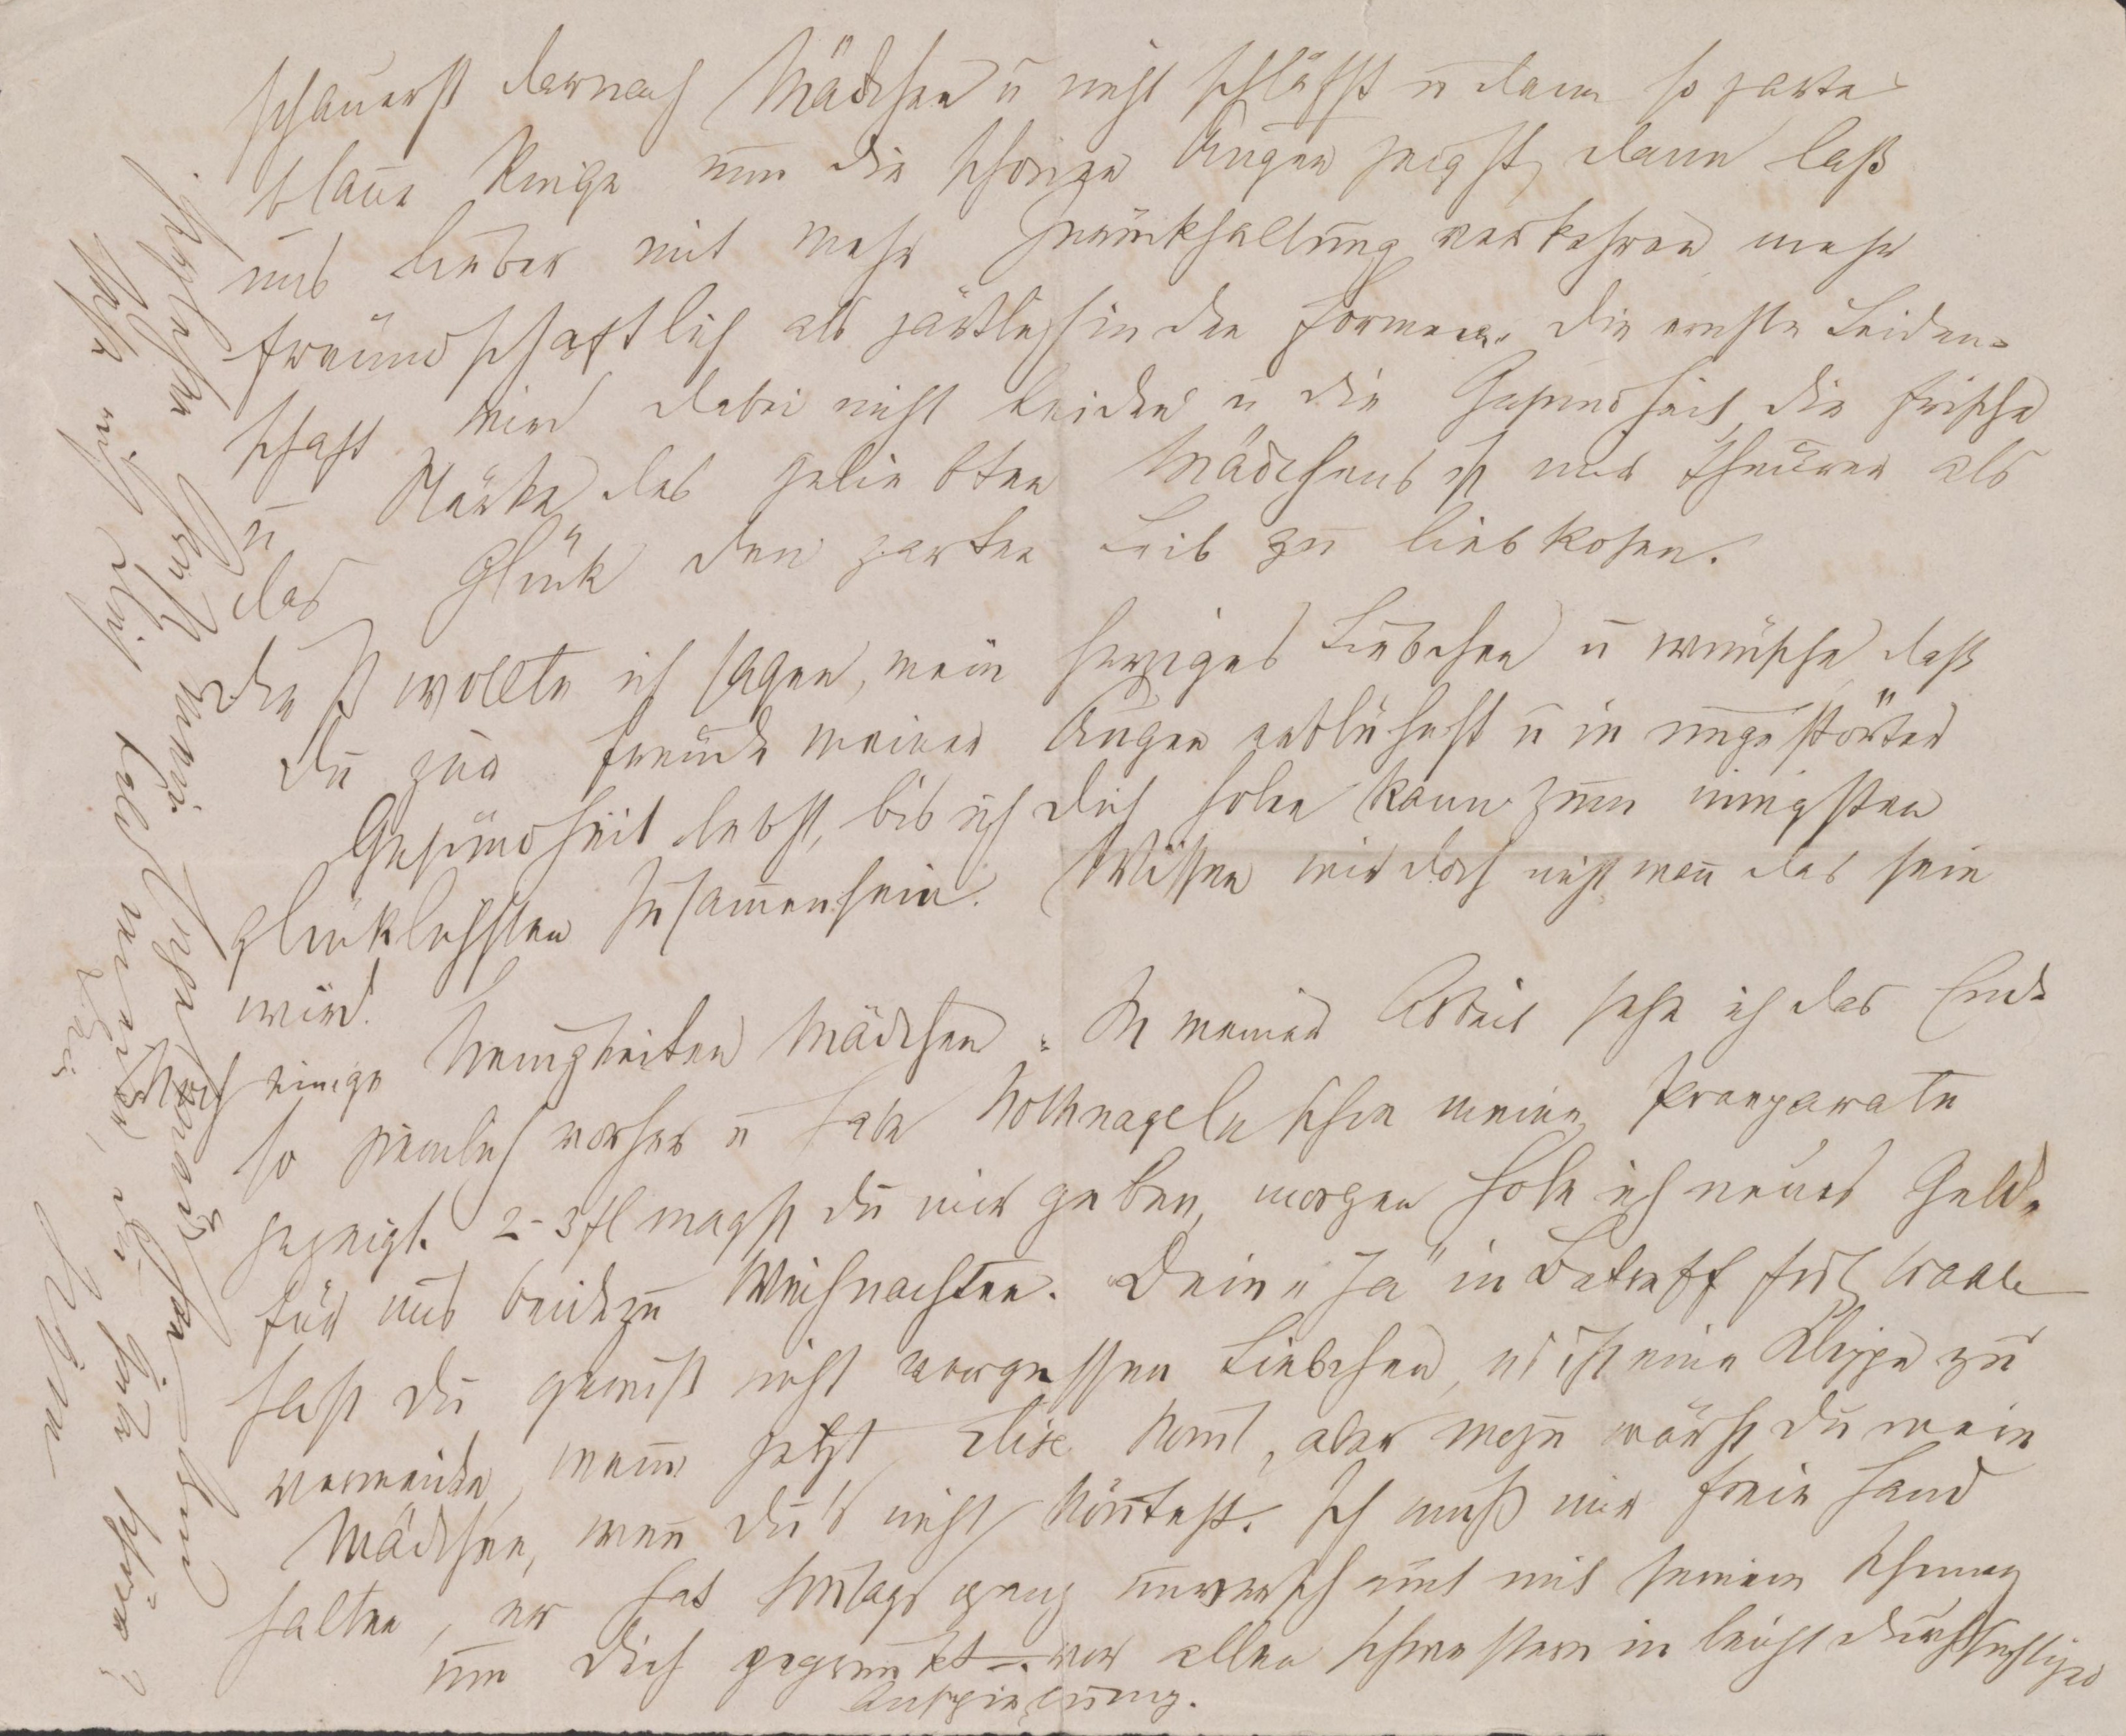 schauerst darnach Mädchen u nicht schläfst u dann so zarte
blaue Ringe um die schönen Augen zeigst, dann laß
uns lieber mit mehr Zurückhaltung verkehren mehr
freundschaftlich als zärtlich in den Formen. Die ernste Leiden-
schaft wird dabei nicht leiden u die Gesundheit, die Frische
u Stärke des geliebten Mädchens ist mir theurer als
das Glück den zarten Leib zu liebkosen.
Dieß wollte ich sagen, mein herziges Liebchen u wünsche daß
Du zur Freude meiner Augen erblühest u in ungestörter
Gesundheit lebst, bis ich Dich holen kann zum innigsten
glücklichsten Zusammensein. Wissen wir doch nicht wann das sein
wird.
Noch einige Neuigkeiten Mädchen. In meiner Arbeit sehe ich das Ende
so ziemlich vorher u habe Nothnageln schon meine Praeparate
gezeigt. 2-3 fl magst Du mir geben, morgen hole ich neues Geld
für uns beide zu Weihnachten. Dein "Ja" in Betreff Fritz Wahle
hast Du gewiß nicht vergessen Liebchen, es ist eine Klippe zu
vermeiden, wenn jetzt Elise kommt, aber wozu wärst Du mein
Mädchen, wenn Du's nicht könntest. Ich muß mir freie Hand
halten, er hat Sonntags ganz unverschämt mit seinem Schmerz
um Dich geprunkt vor allen Schwestern in leicht durchsichtiger
Anspielung.